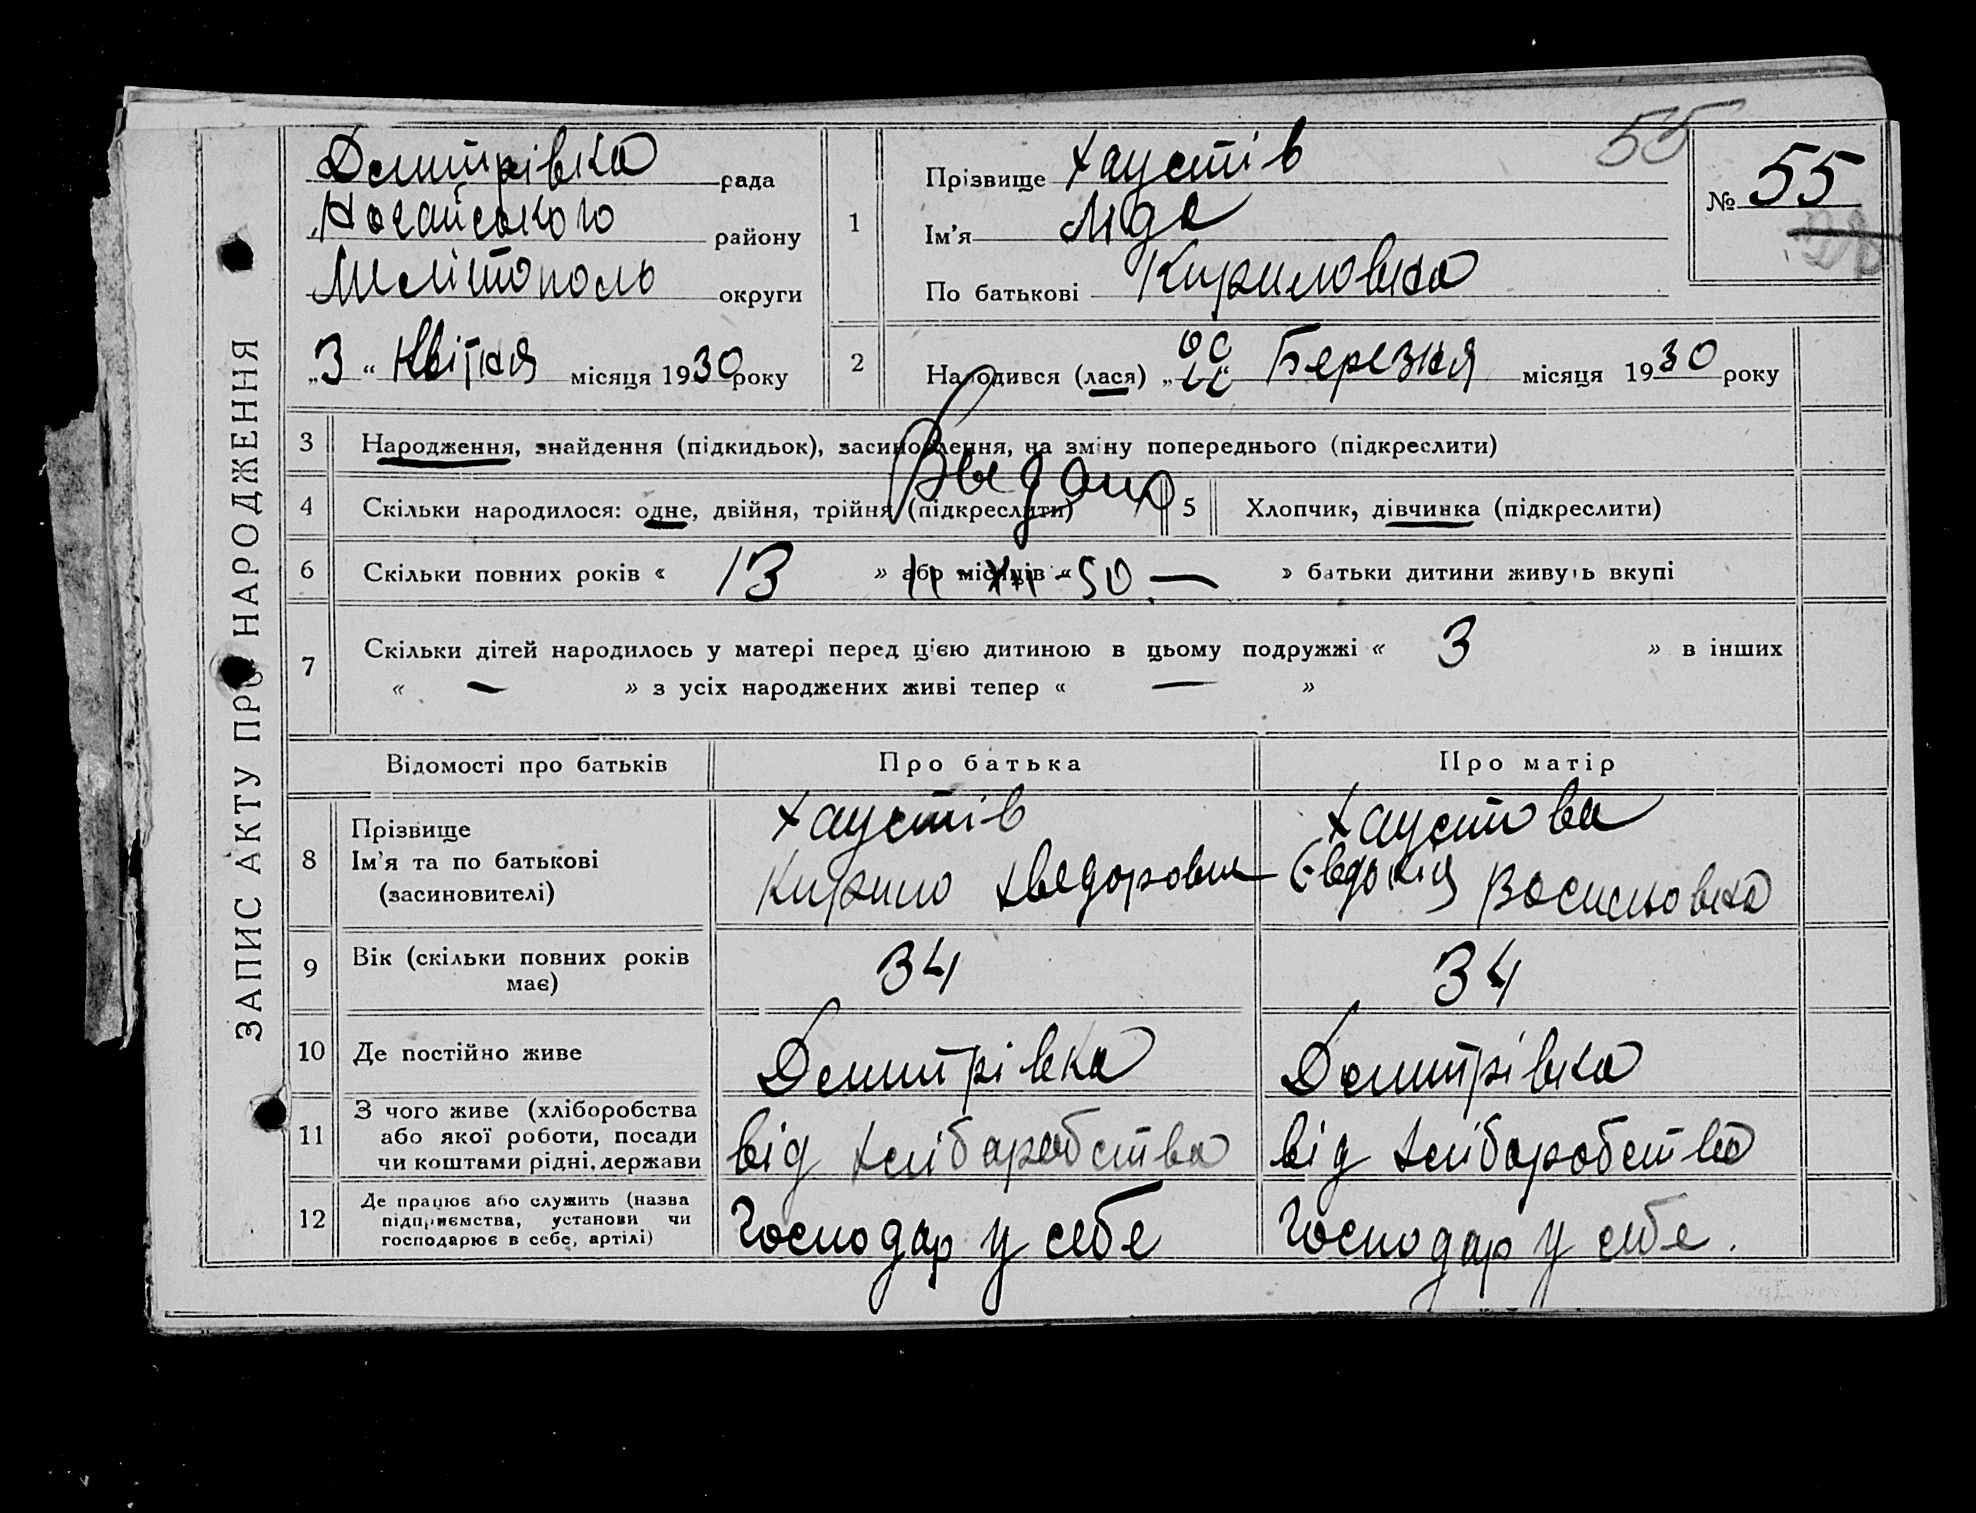 ЗАПИС АКТУ ПРО НАРОДЖЕННЯ
55
Дмитрівка рада
Ногайського району
Мелітополь округи
„3“ Квітня місяця 1930 року
1
Прізвище Хаустів
Ім'я
По батькові Кириловна
№ 55
2
Народився (лася) „ “ Березня місяця 1930 року
3 Народження, знайдення (підкидьок), засиновлення, на зміну попереднього (підкреслити)
4 Скільки народилося: одне, двійня, трійня (підкреслити) 5 Хлопчик, дівчинка (підкреслити)
6 Скільки повних років « 13 » або місяців « — » батьки дитини живуть вкупі
7 Скільки дітей народилось у матері перед цією дитиною в цьому подружжі « 3 » в інших
« — » з усіх народжених живі тепер « — »
Відомості про батьків Про батька Про матір
8 Прізвище
Ім'я та по батькові
(засиновителі)
Хаустів
Кирило Хведорович
Хаустова
Євдокія Василовна
9 Вік (скільки повних років
має)
34 34
10 Де постійно живе Дмитрівка Дмитрівка
11 З чого живе (хліборобства
або якої роботи, посади
чи коштами рідні, держави
від хліборобства від хліборобства
12 Де працює або служить (назва
підприємства, установи чи
господарює в себе, артілі)
Господар у себе Господар у себе.